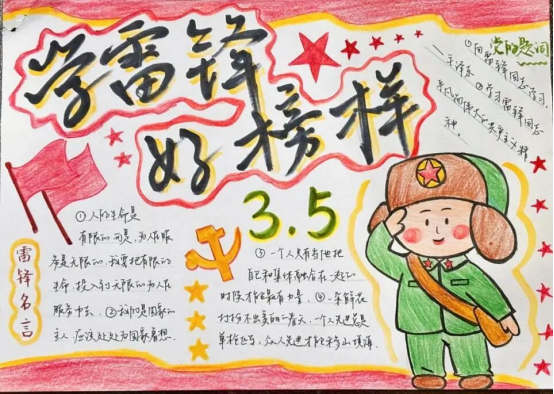 学雷锋
好榜样
党的题词
①向雷锋同志学习
—毛泽东 ②学习雷锋同志
3.5
雷锋名言
①人的生命是
有限的,可是,为人民服
务是无限的,我要把有限的
生命,投入到无限的为人民
服务中去。②我们是国家的
主人,应该处处为国家着想.
③一个人只有当他把
自己和集体融合在一起的
时候才能最有力量。④一朵鲜花
打扮不出美丽的春天,一个人先进总是
单枪匹马,众人先进才能移山填海